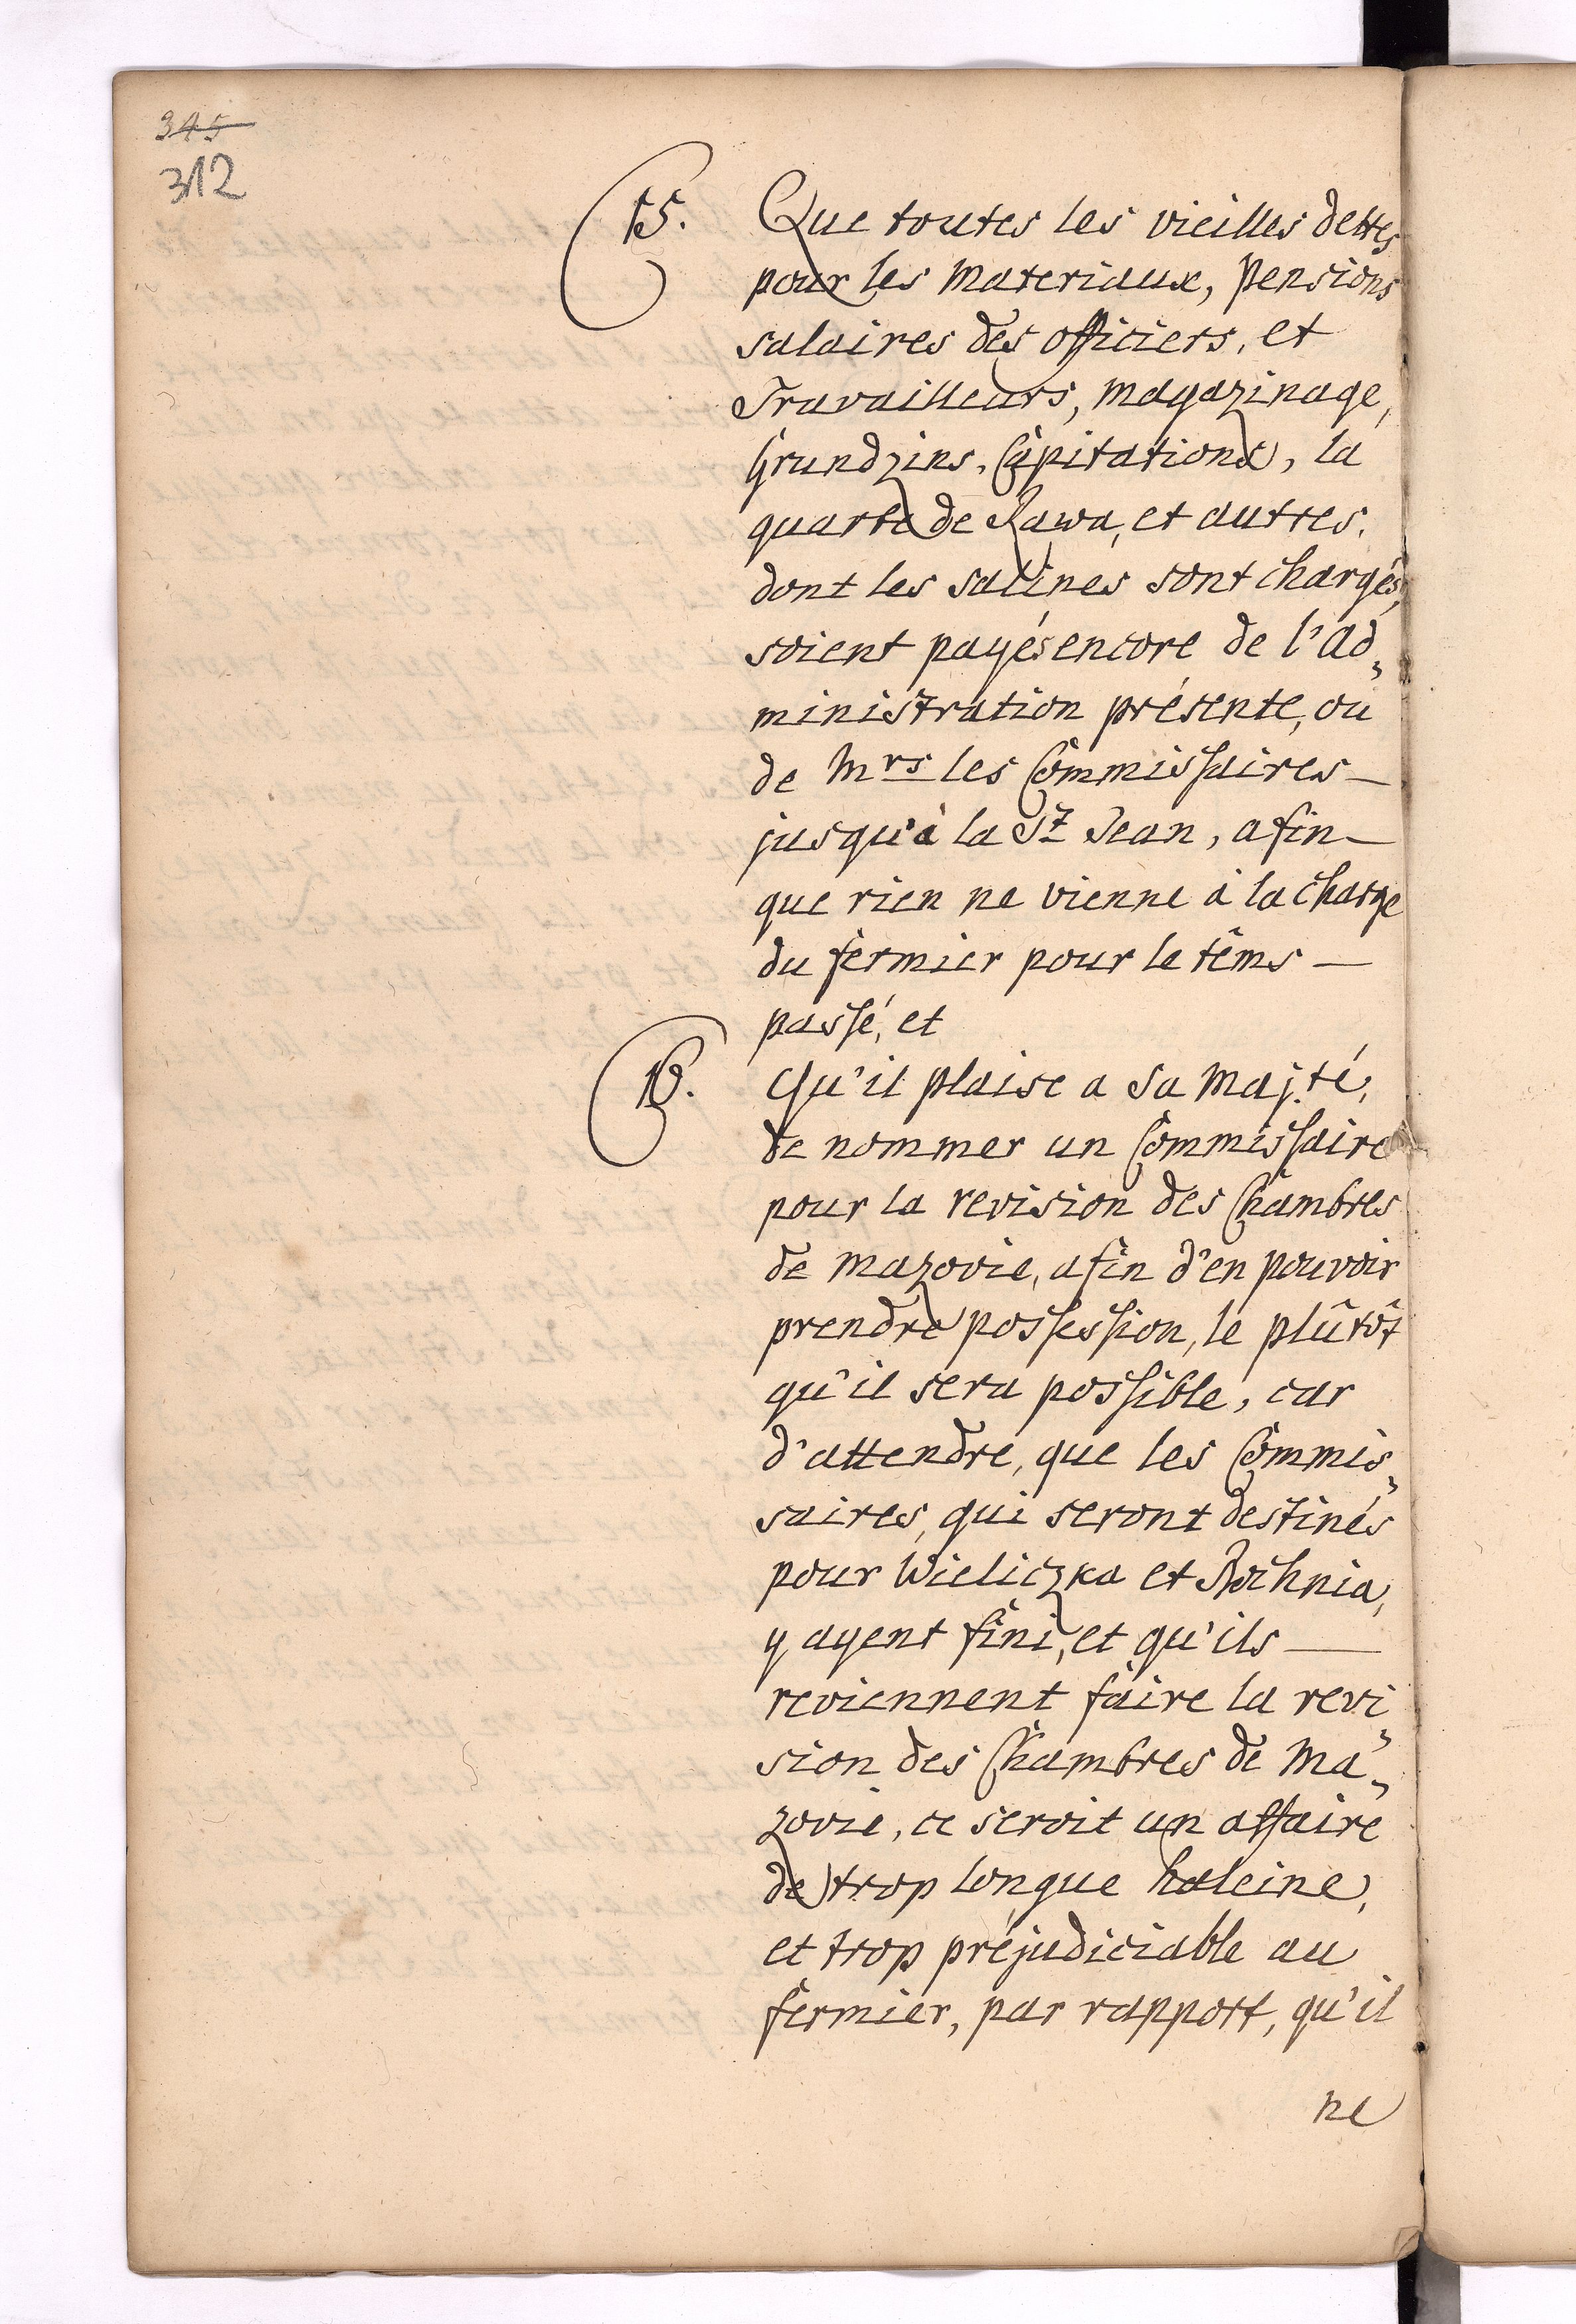 345
312
15. Que toutes les vieilles dettes
pour les materiaux, pensions
salaires des officiers, et
Travailleurs, magazinage,
Grundzins, Capitations, la
quarta de Rawa, et autres.
dont les salines sont chargés,
soient payés encore de l'ad„
ministration présente, ou
de Mrs les Commissaires —
jusqu'à la St Jean, afin —
que rien ne vienne à la charge
du fermier pour le têms —
passé, et
16. Qu'il plaise a Sa Majté,
de nommer un Commissaire
pour la revision des Chambres
de Mazovie, afin d'en pouvoir
prendre possession, le plûtôt
qu'il sera possible, car
d'attendre, que les Commis„
saires, qui seront destinés
pour Wieliczka et Bochnia,
y ayent fini, et qu'ils —
reviennent faire la revi„
sion des Chambres de Ma„
zovie, ce seroit un affaire
de trop longue haleine,
et trop préjudiciable au
fermier, par rapport, qu'il
ne